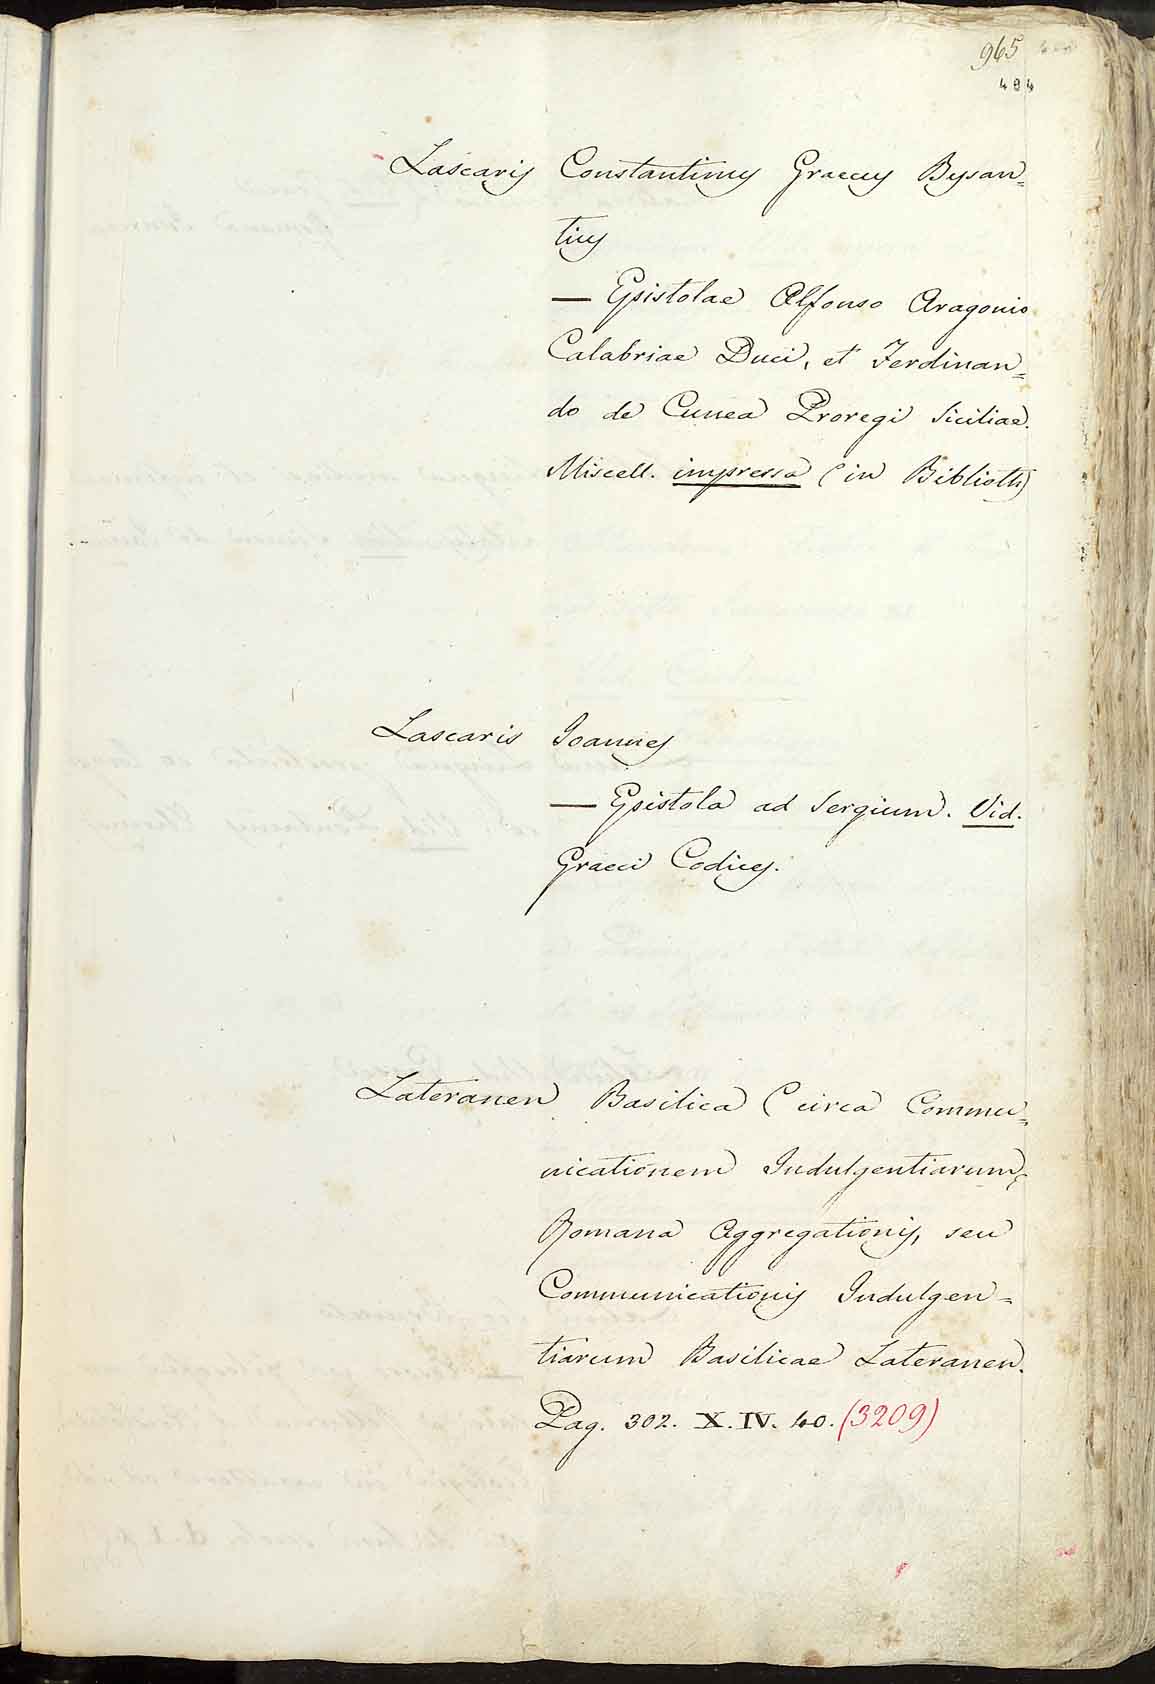 965
484
Lascaris Constantinus Graecus Bysan=
tius
— Epistolae Alfonso Aragonio
Calabriae Duci, et Ferdinan=
do de Cunea Proregi Siciliae.
Miscell. impressa (in Biblioth)
Lascaris Joannes
— Epistola ad Sergium. Vid.
Graeci Codices.
Lateranen Basilica (circa Commu=
nicationem Indulgentiarum)
Romana Aggregationis, seu
Communicationis Indulgen=
tiarum Basilicae Lateranen.
Pag. 302. X. IV. 40. (3209)